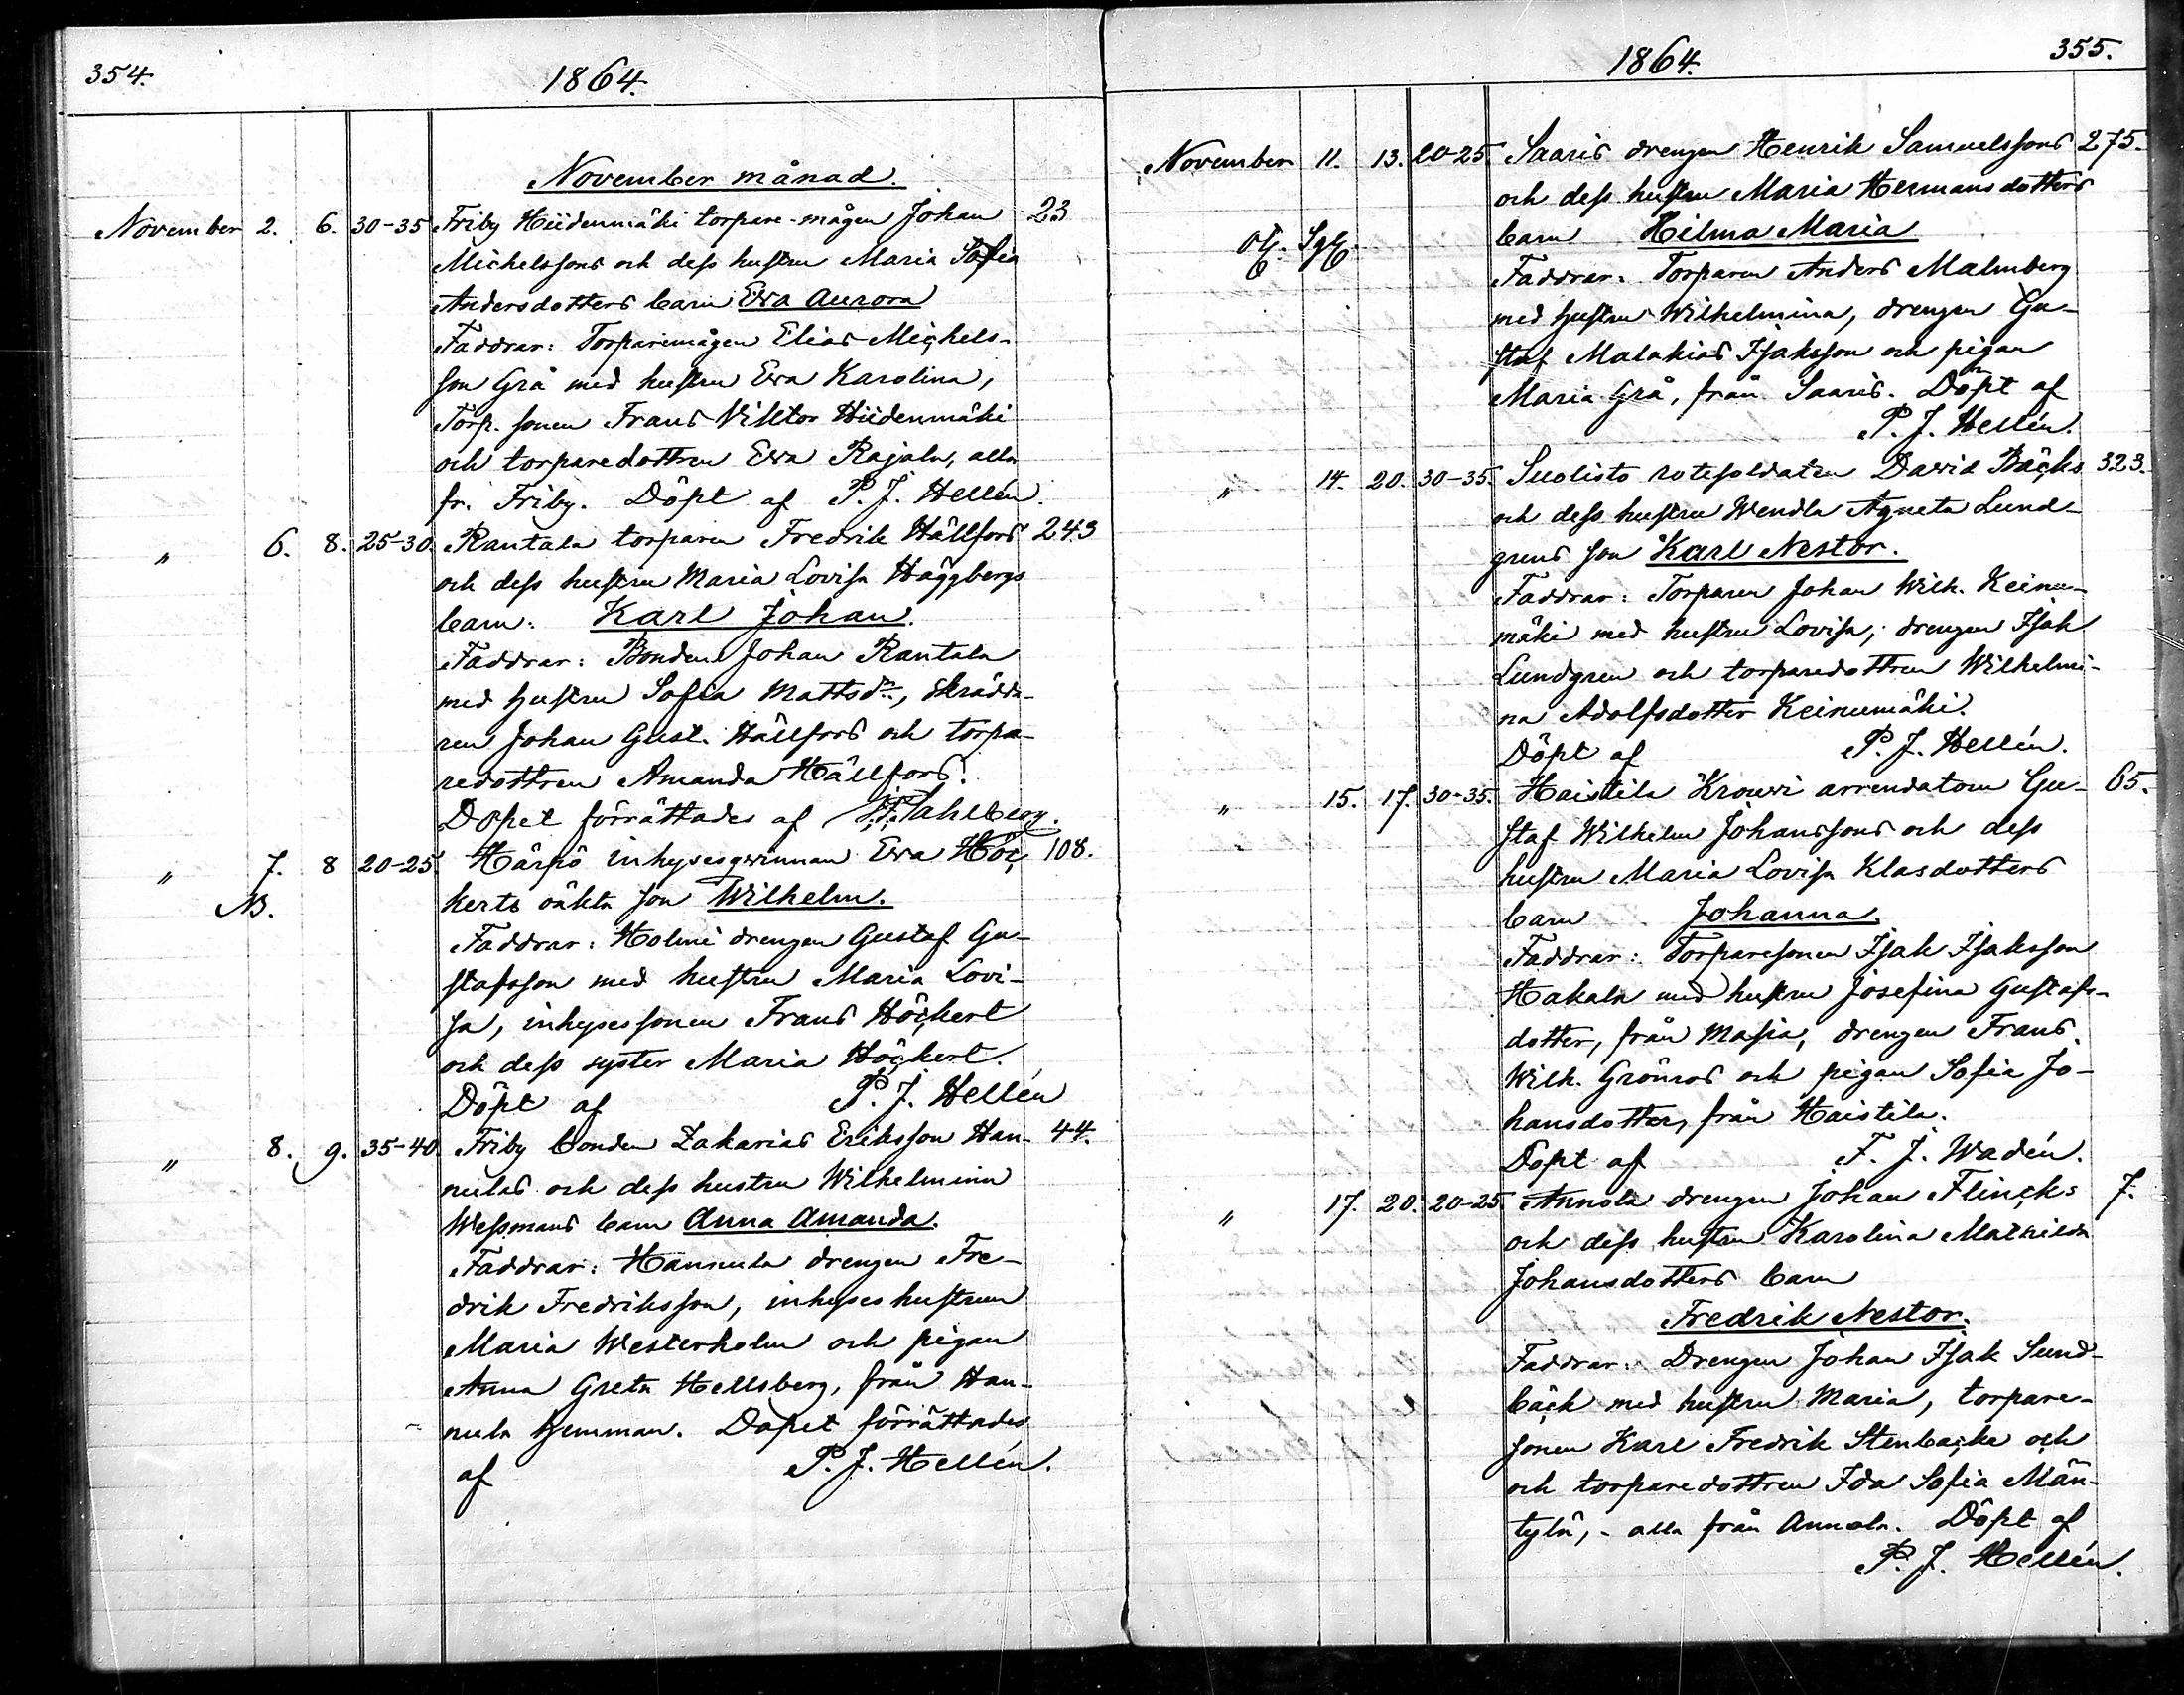 354.
1864.
November månad.
November 2. 6. 30-35 Friby Hiidenmäki torpare-mågen Johan 23
Michelssons och dess hustru Maria Sofia
Andersdotters barn Eva Aurora
Faddrar: Torparemågen Elias Michels-
son Grå med hustru Eva Karolina,
Torp. sonen Frans Viktor Hiidenmäki
och torparedottren Eva Rajala, alla
fr. Friby. Döpt af P. J. Hellén.
" 6. 8. 25-30. Rantala torparen Fredrik Hällfors 243
och dess hustru Maria Lovisa Häggbergs
barn: Karl Johan.
Faddrar: Bonden Johan Rantala
med hustru Sofia Mattsdr, skrädda-
ren Johan Gust. Hällfors och torpa-
redottren Amanda Hällfors.
Dopet förrättades af Sahlberg.
" 7. 8 20-25. Härpö inhysesqvinnan Eva Höc- 108.
NB.
kerts oäkta son Wilhelm.
Faddrar: Holmi drengen Gustaf Gu-
stafsson med hustru Maria Lovi-
sa, inhysessonen Frans Höckert
och dess syster Maria Höckert.
Döpt af P. J. Hellén
" 8. 9. 35-40. Friby bonden Zakarias Eriksson Han- 44.
nulas och dess hustru Wilhelmina
Wessmans barn Anna Amanda.
Faddrar: Hannula drengen Fre-
drik Fredriksson, inhyses hustrun
Maria Westerholm och pigan
Anna Greta Hellsberg, från Han-
nula hemman. Dopet förrättades
af P. J. Hellén.
1864.
355.
November 11. 13. 20-25. Saaris drengen Henrik Samuelssons 275.
och dess hustru Maria Hermansdotters
barn Hilma Maria
Faddrar: Torparen Anders Malmberg
med hustru Wilhelmina, drengen Gu-
staf Malakias Isaksson och pigan
Maria Grå, från Saaris. Döpt af
P. J. Hellén.
" 14. 20. 30-35. Suolisto rotesoldaten David Bäcks 323.
och dess hustru Wendla Agneta Lund-
grens son Karl Nestor.
Faddrar: Torparen Johan Wilh. Keinu-
mäki med hustru Lovisa, drengen Isak
Lundgren och torparedottren Wilhelmi-
na Adolfsdotter Keinumäki.
Döpt af P. J. Hellén.
" 15. 17. 30-35. Haistila Krouvi arrendatorn Gu- 65.
staf Wilhelm Johanssons och dess
hustru Maria Lovisa Klasdotters
barn Johanna.
Faddrar: Torparesonen Isak Isaksson
Hakala med hustru Josefina Gustafs-
dotter, från Masia, drengen Frans
Wilh. Grönros och pigan Sofia Jo-
hansdotter, från Haistila.
Döpt af F. J. Wadén.
" 17. 20. 20-25. Annola drengen Johan Flincks 7.
och dess hustru Karolina Mathilda
Johansdotters barn
Fredrik Nestor.
Faddrar: Drengen Johan Isak Sund-
bäck med hustru Maria, torpare-
sonen Karl Fredrik Stenbacka och
och torparedottren Ida Sofia Män-
tylä, - alla från Annola. Döpt af
P. J. Hellén.